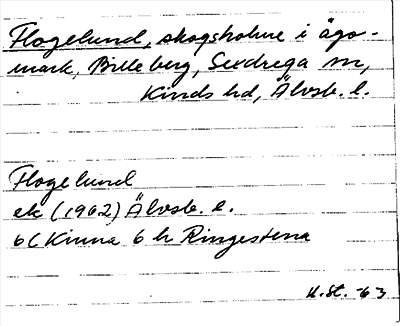 Flogelund, skogsholme i ägo-
mark, Billeberg, Sexdrega sn,
Kinds hd, Älvsb. l.
Flogelund
ek (1962) Älvsb. l.
6C Kinna 6 h Ringestena
U.St. -63